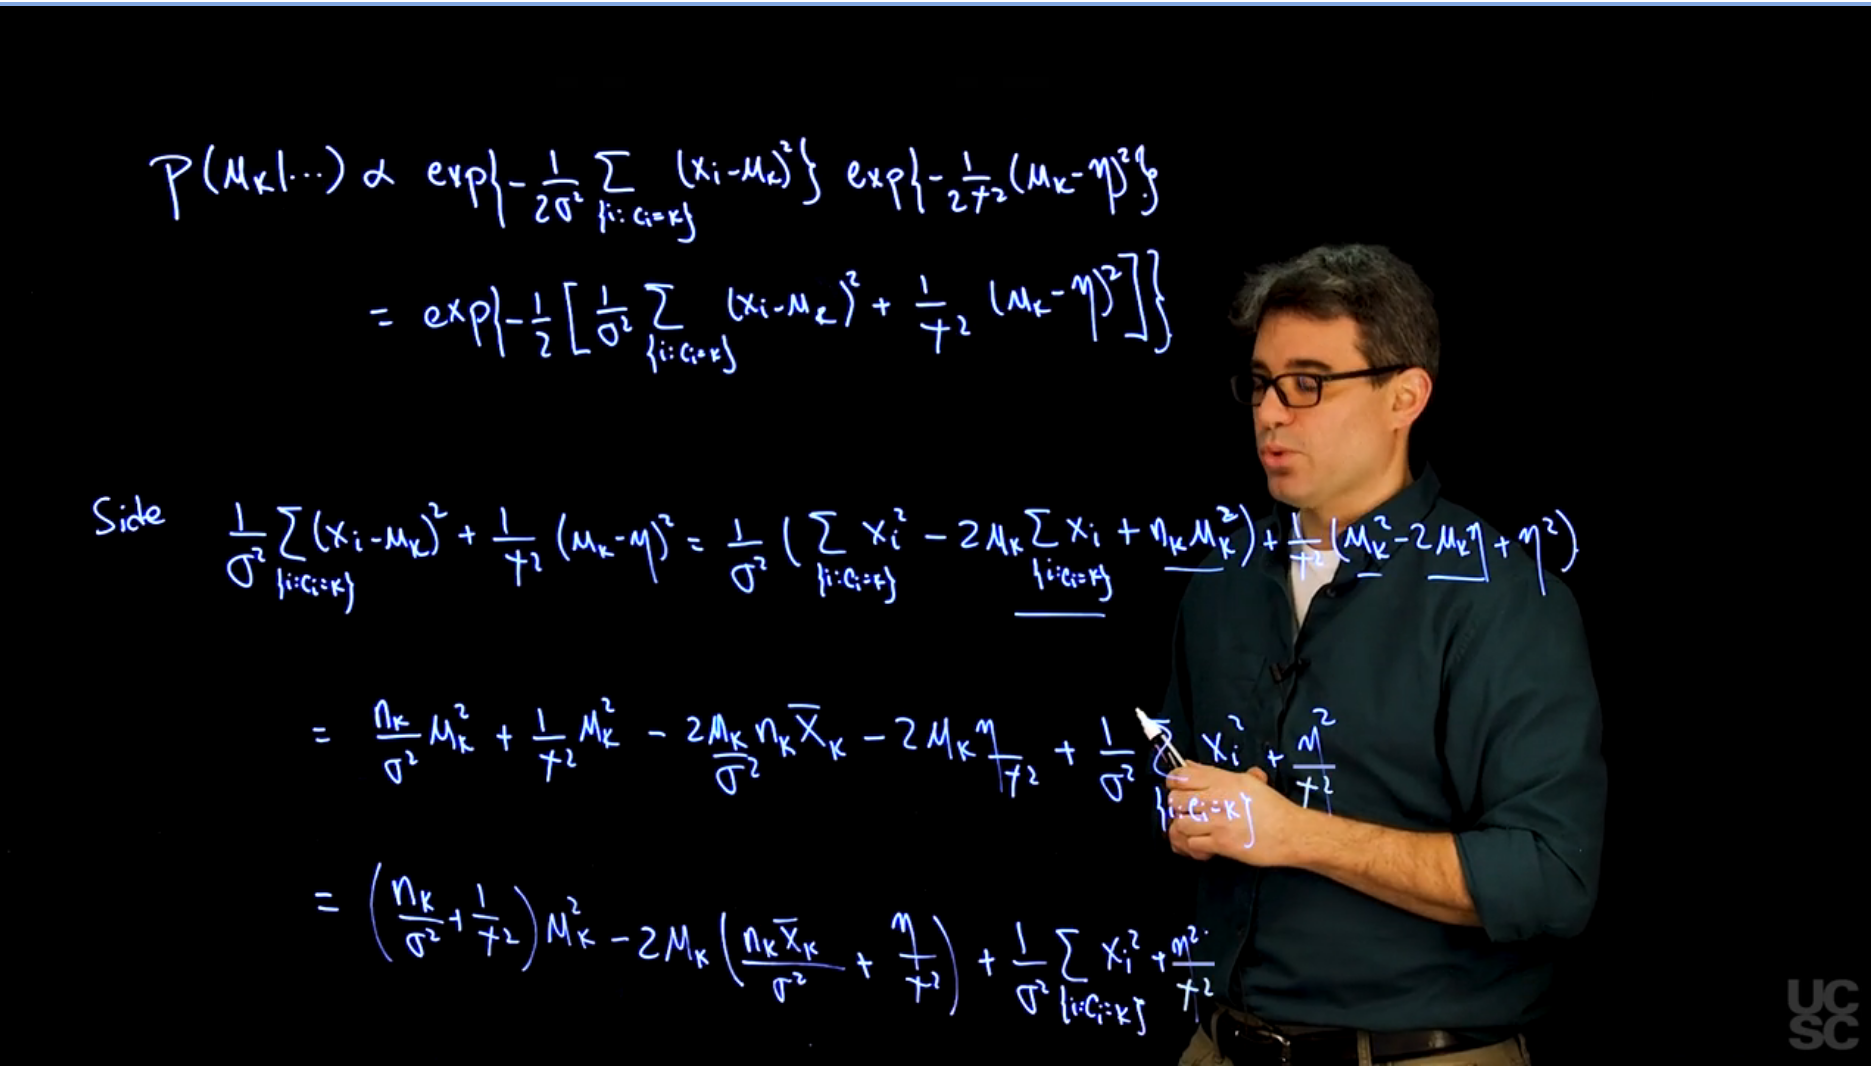 P(μ_K|...) ∝ exp{-1/2σ² Σ_{i:c_i=K} (x_i-μ_K)²} exp{-1/2τ² (μ_K-η)²}
= exp{-1/2 [1/σ² Σ_{i:c_i=K} (x_i-μ_K)² + 1/τ² (μ_K-η)²]}
Side 1/σ² Σ_{i:c_i=K} (x_i-μ_K)² + 1/τ² (μ_K-η)² = 1/σ² (Σ_{i:c_i=K} x_i² - 2μ_K Σ_{i:c_i=K} x_i + n_K μ_K²) + 1/τ² (μ_K² - 2μ_K η + η²)
= n_K/σ² μ_K² + 1/τ² μ_K² - 2μ_K/σ² n_K x̄_K - 2μ_K η/τ² + 1/σ² Σ_{i:c_i=K} x_i² + η²/τ²
= (n_K/σ² + 1/τ²) μ_K² - 2μ_K (n_K x̄_K/σ² + η/τ²) + 1/σ² Σ_{i:c_i=K} x_i² + η²/τ²
UC
SC